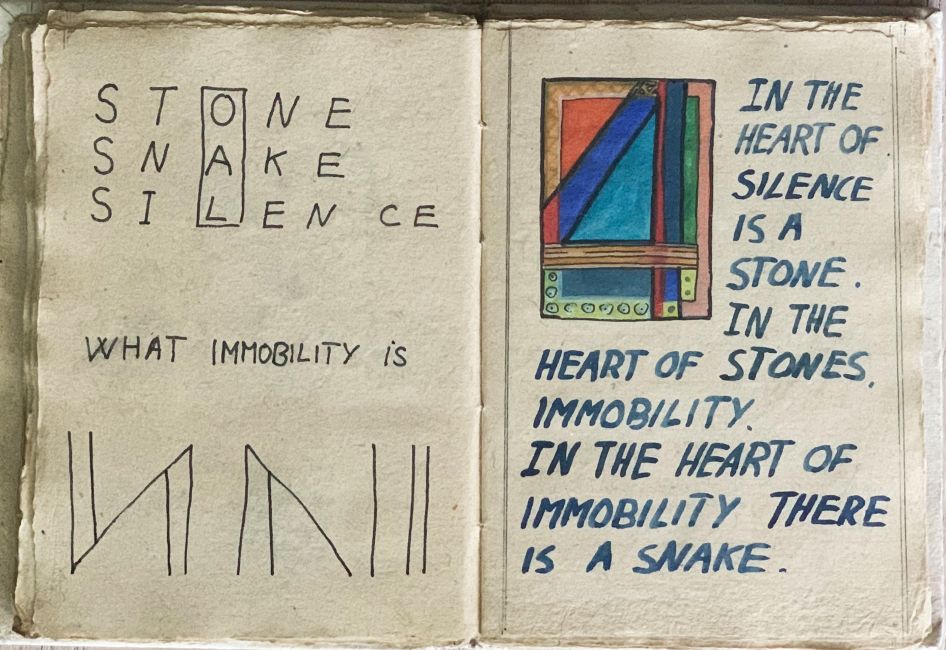 STONE
SNAKE
SILENCE
WHAT IMMOBILITY is
4
IN THE
HEART OF
SILENCE
IS A
STONE.
IN THE
HEART OF STONES,
IMMOBILITY.
IN THE HEART OF
IMMOBILITY THERE
IS A SNAKE.